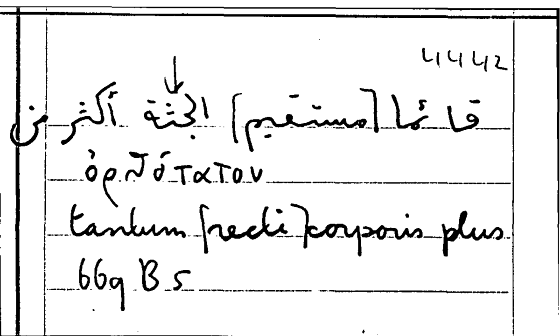 4442
قائما [مستقيم] الجثة أكثر من
ὀρθότατον
tantum [recti] corporis plus
669 B 5